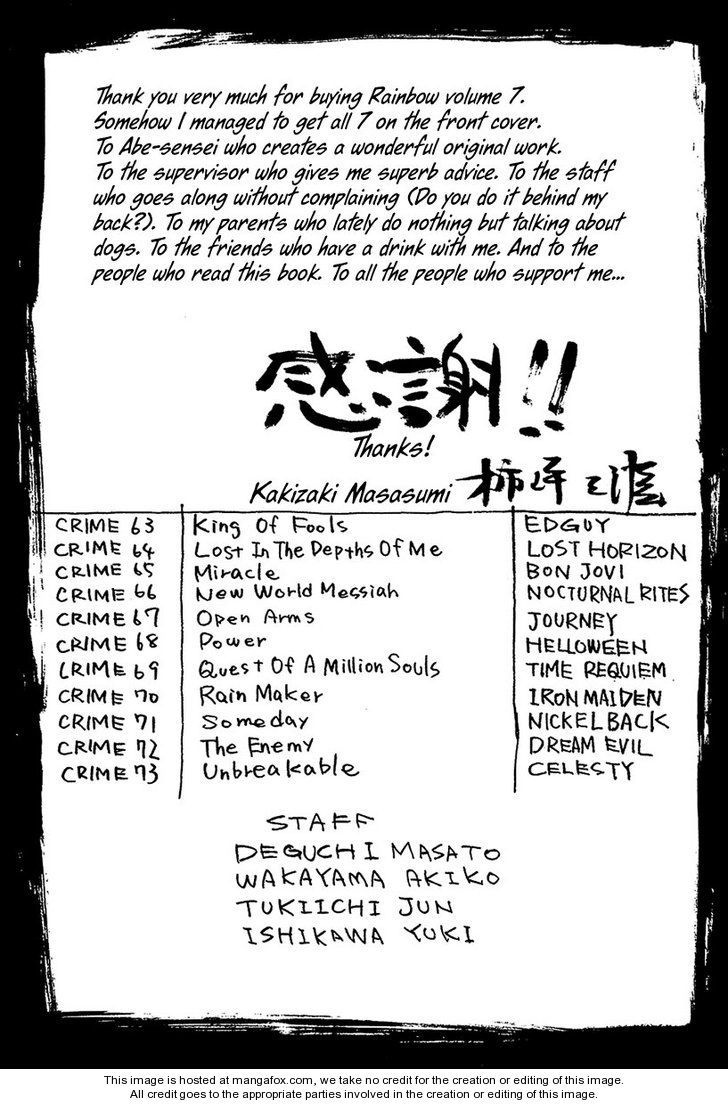 Thank you very much for buying Rainbow volume 7.
Somehow I managed to get all 7 on the front cover.
To Abe-sensei who creates a wonderful original work.
To the supervisor who gives me superb advice. To the staff
who goes along without complaining (Do you do it behind my
back?). To my parents who lately do nothing but talking about
dogs. To the friends who have a drink with me. And to the
people who read this book. To all the people who support me...
感謝!!
Thanks!
Kakizaki Masasumi
CRIME 63 King Of Fools EDGUY
CRIME 64 Lost In The Depths Of Me LOST HORIZON
CRIME 65 Miracle BON JOVI
CRIME 66 New World Messiah NOCTURNAL RITES
CRIME 67 Open Arms JOURNEY
CRIME 68 Power HELLOWEEN
CRIME 69 Quest Of A Million Souls TIME REQUIEM
CRIME 70 Rain Maker IRON MAIDEN
CRIME 71 Someday NICKELBACK
CRIME 72 The Enemy DREAM EVIL
CRIME 73 Unbreakable CELESTY
STAFF
DEGUCHI MASATO
WAKAYAMA AKIKO
TUKIICHI JUN
ISHIKAWA YUKI
This image is hosted at mangafox.com, we take no credit for the creation or editing of this image.
All credit goes to the appropriate parties involved in the creation or editing of this image.